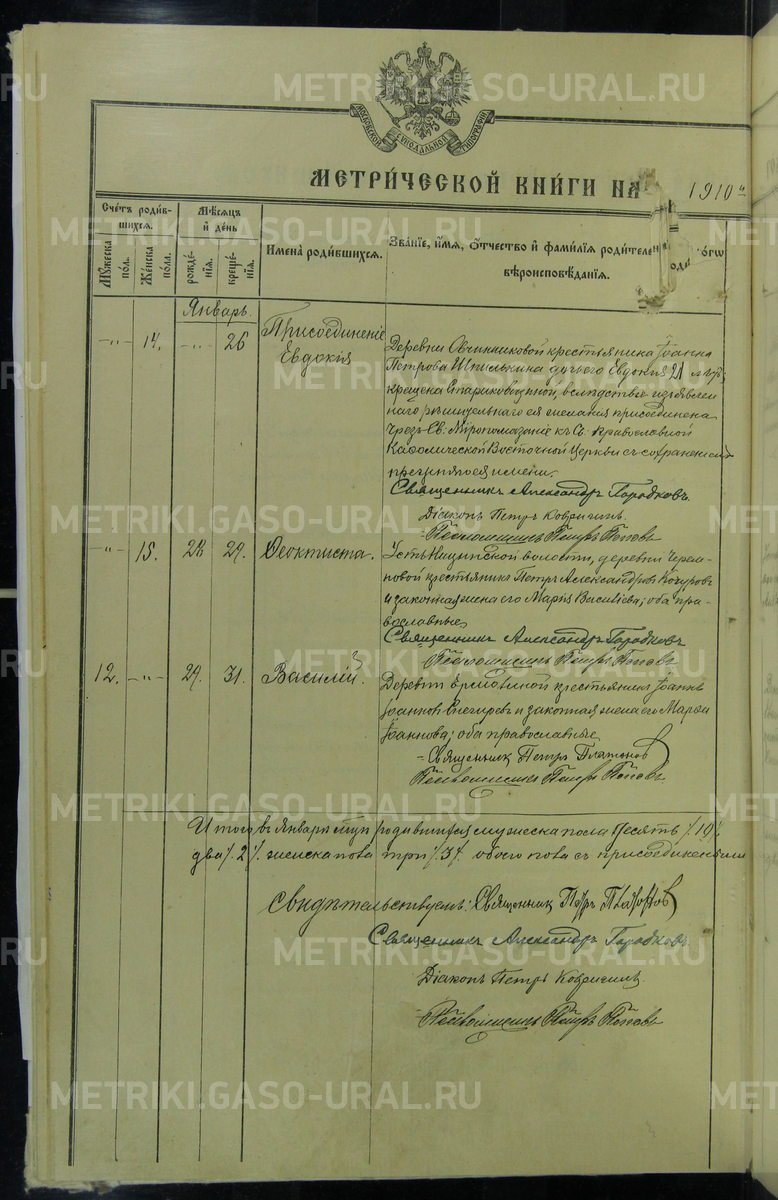 METRIKI.GASO-URAL.RU
МОСКОВСКОЙ СѴНОДАЛЬНОЙ ТИПОГРАФІИ
МЕТРИ́ЧЕСКОЙ КНИ́ГИ НА 1910
Сче́тъ роди́в-
шихся.
Мꙋ́жеска по́ла.
Же́нска по́ла.
Мѣ́сяцъ
и҆ де́нь
рожде́-
нїя.
креще́-
нїя.
И҆мена̀ роди́вшихся.
Зва́нїе, и҆́мя, ѻ҆́тчество и҆ фами́лїя роди́теле
вѣроисповѣ́данїя.
Январь.
-„- 14. -„- 26
Присоединеніе
Евдокія
Деревни Овчинниковой крестьянина Іоанна
Петрова Шпилькина дочь его Евдокія 21
крещена Стариковщиной, вслѣдствіе изъявлен
наго рѣшительнаго ея желанія присоединена
чрезъ Св. Мѵропомазаніе къ Св. Православной
Каѳолической Восточной Церкви съ сохраненіемъ
имени.
Священникъ Александръ Городковъ.
Діаконъ Петръ
Псаломщикъ Петръ Поповъ
-„- 15. 28 29. Ѳеоктиста.
Усть Ницинской волости, деревни
новой крестьянинъ Петръ Александровъ
и законная жена его Марія Васильева; оба пра-
вославные
Священникъ Александръ Городковъ
Псаломщикъ Петръ Поповъ
12. -„- 29. 31. Василій.
Деревни крестьянинъ Іоаннъ
Іоанновъ Снегиревъ и законная жена его Марѳа
Іоаннова; оба православные
Священникъ Петръ Платоновъ
Псаломщикъ Петръ Поповъ.
Итого въ Январѣ родившихся мужеска пола десять
два /.2/. женска пола три /.3/. обоего пола съ присоединенными
Свидѣтельствуемъ: Священникъ Петръ Платоновъ
Священникъ Александръ Городковъ.
Діаконъ Петръ
Псаломщикъ Петръ Поповъ